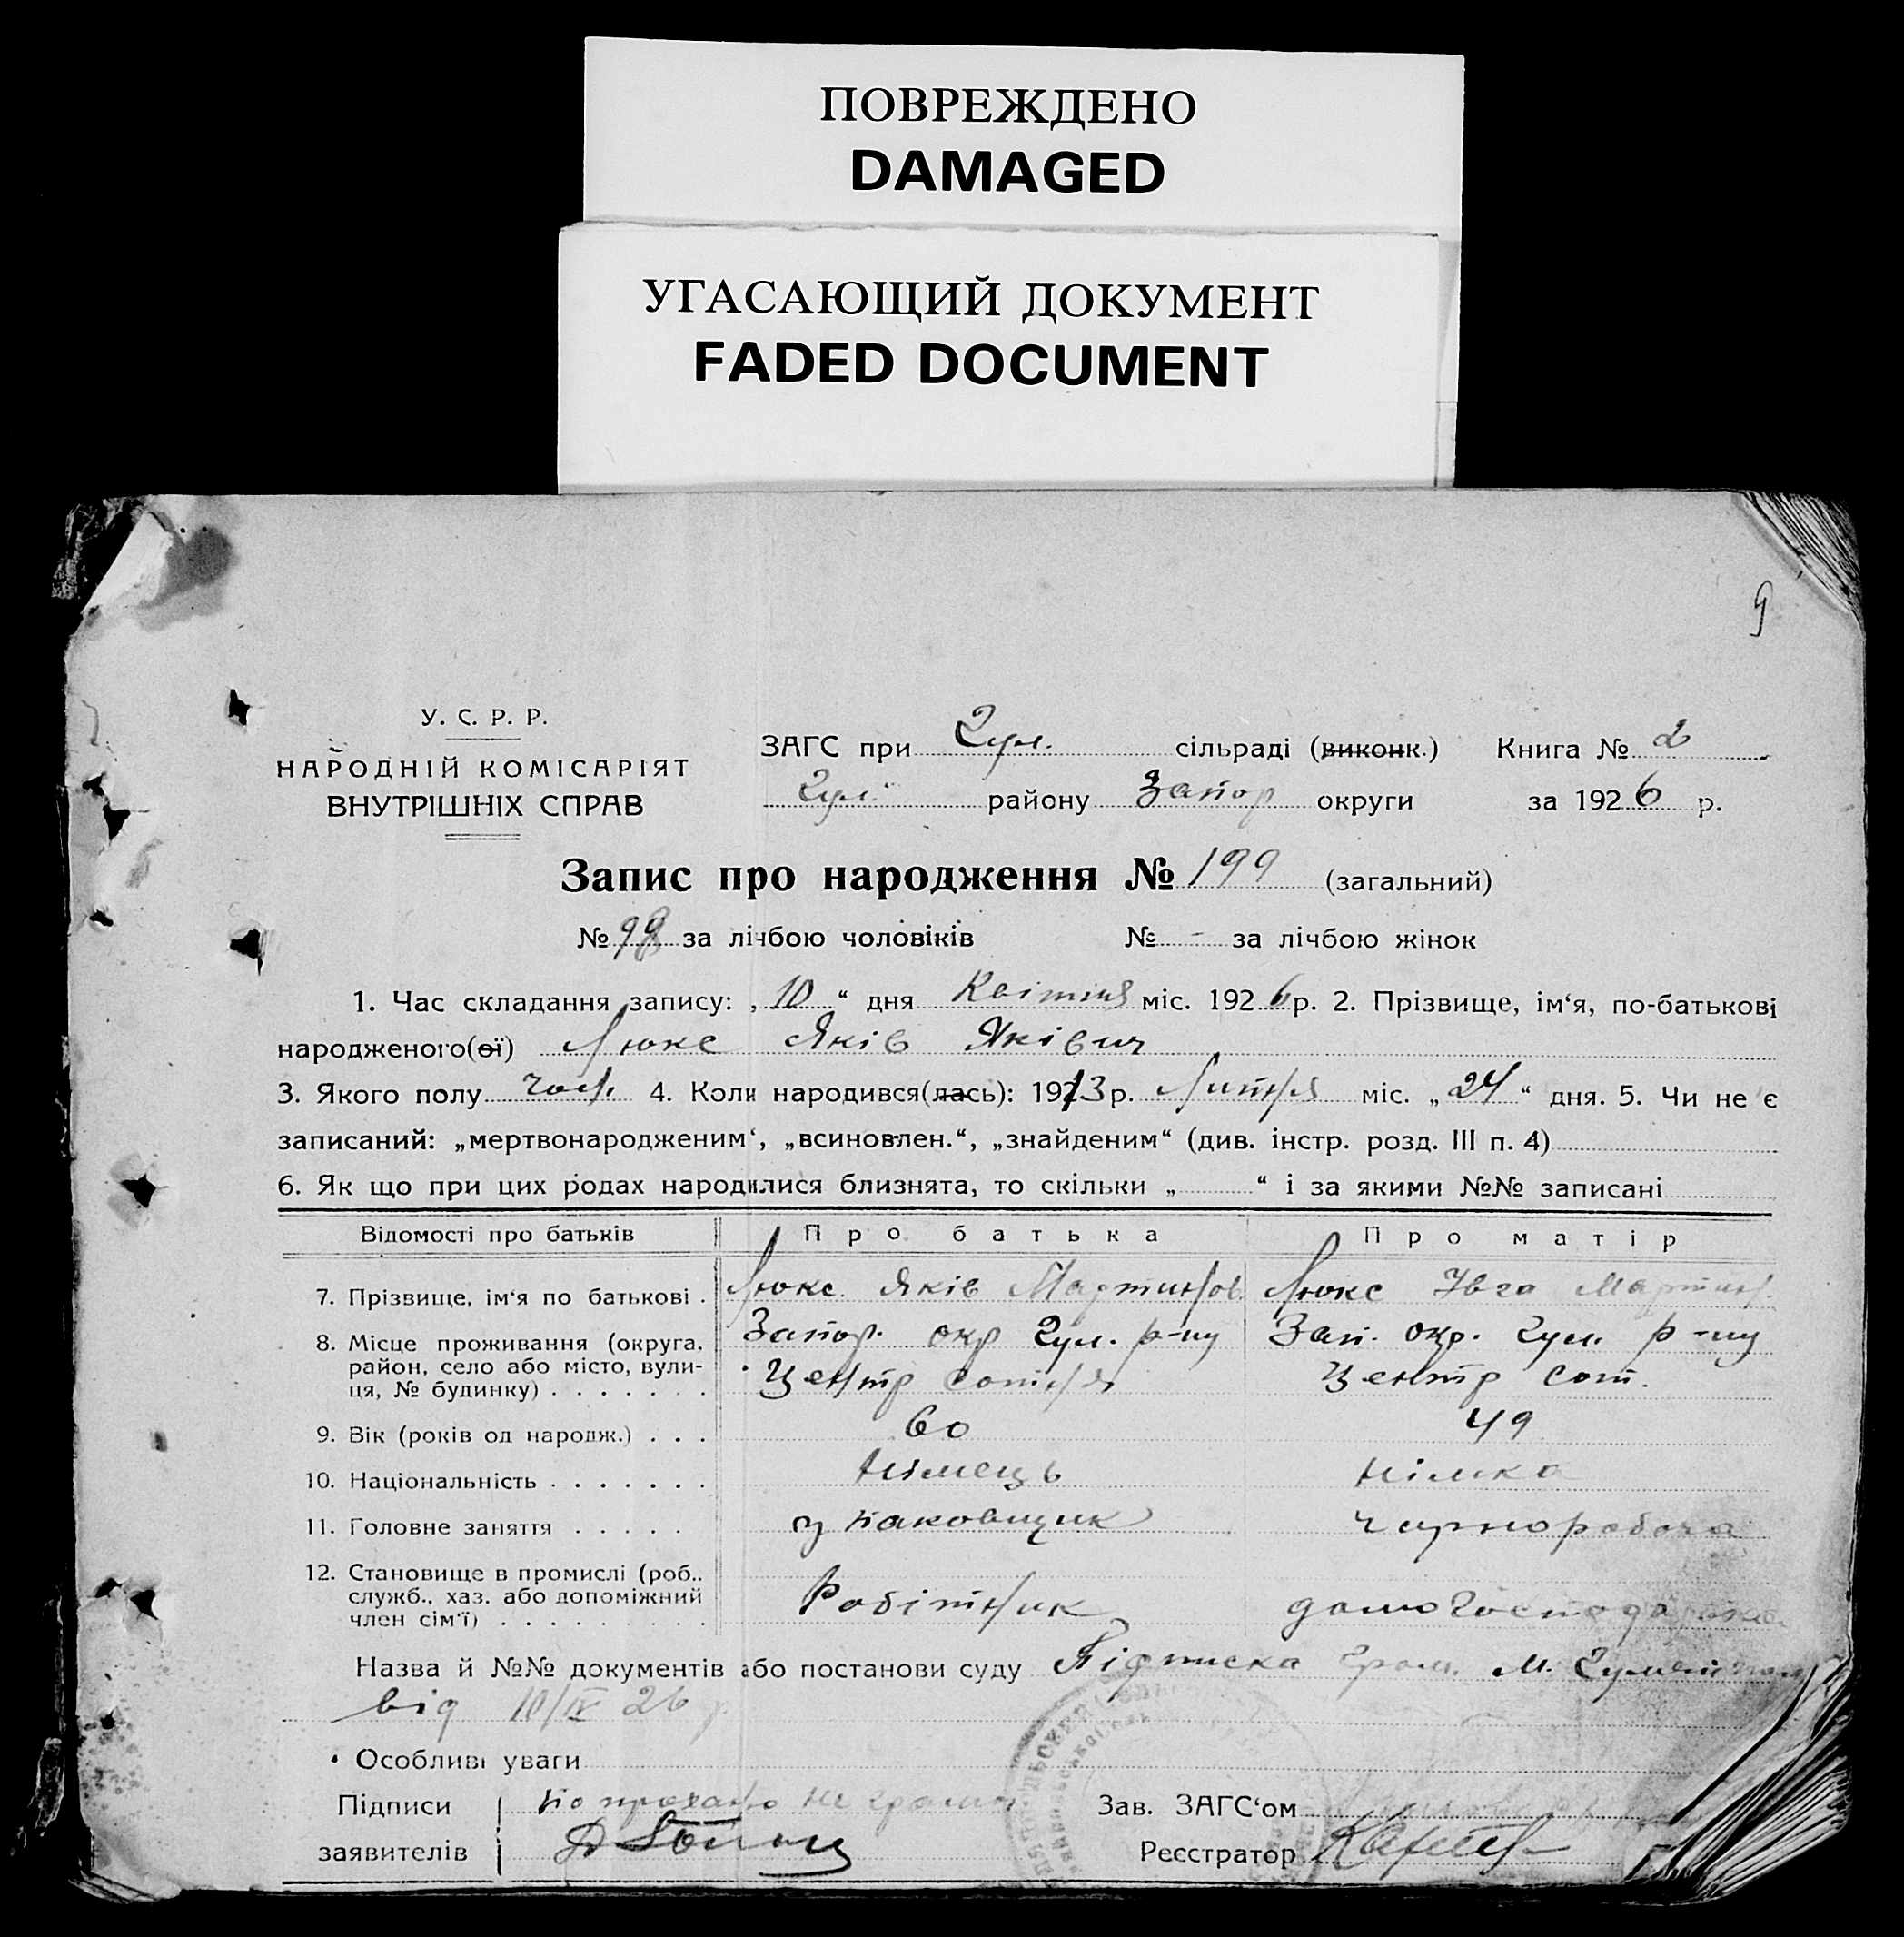 ПОВРЕЖДЕНО
DAMAGED
УГАСАЮЩИЙ ДОКУМЕНТ
FADED DOCUMENT
9
У. С. Р. Р.
НАРОДНІЙ КОМІСАРІЯТ
ВНУТРІШНІХ СПРАВ
ЗАГС при Гул. сільраді (виконк.) Книга № 2
Гул. району Запор округи за 1926 р.
Запис про народження № 199 (загальний)
№ 98 за лічбою чоловіків № - за лічбою жінок
1. Час складання запису: „10“ дня Квітня міс. 1926 р. 2. Прізвище, ім‘я, по-батькові
народженого(ої) Люкс Яків Яківич
3. Якого полу чол. 4. Коли народився(лась): 1913 р. Липня міс. „24“ дня. 5. Чи не є
записаний: „мертвонародженим“, „всиновлен.“, „знайденим“ (див. інстр. розд. III п. 4)
6. Як що при цих родах народилися близнята, то скільки „ “ і за якими №№ записані
Відомості про батьків Про батька Про матір
7. Прізвище, ім‘я по батькові . Люкс Яків Мартинов Люкс Івга Мартин.
8. Місце проживання (округа, Запор. окр Гул. р-ну Зап. окр. Гул. р-ну
район, село або місто, вули- Центр сотня Центр сот.
ця, № будинку) . . . . . . .
9. Вік (років од народж.) . . . 60 49
10. Національність . . . . . . . німець німка
11. Головне заняття . . . . . упаковщик чорноробоча
12. Становище в промислі (роб.,
служб., хаз. або допоміжний Робітник домогосподарка
член сім‘ї) . . . . . . . . .
Назва й №№ документів або постанови суду Підписка гром. м.
від 10/IV 26 р.
Особливі уваги
Підписи по проханню не грамот Зав. ЗАГС‘ом
заявителів Реєстратор